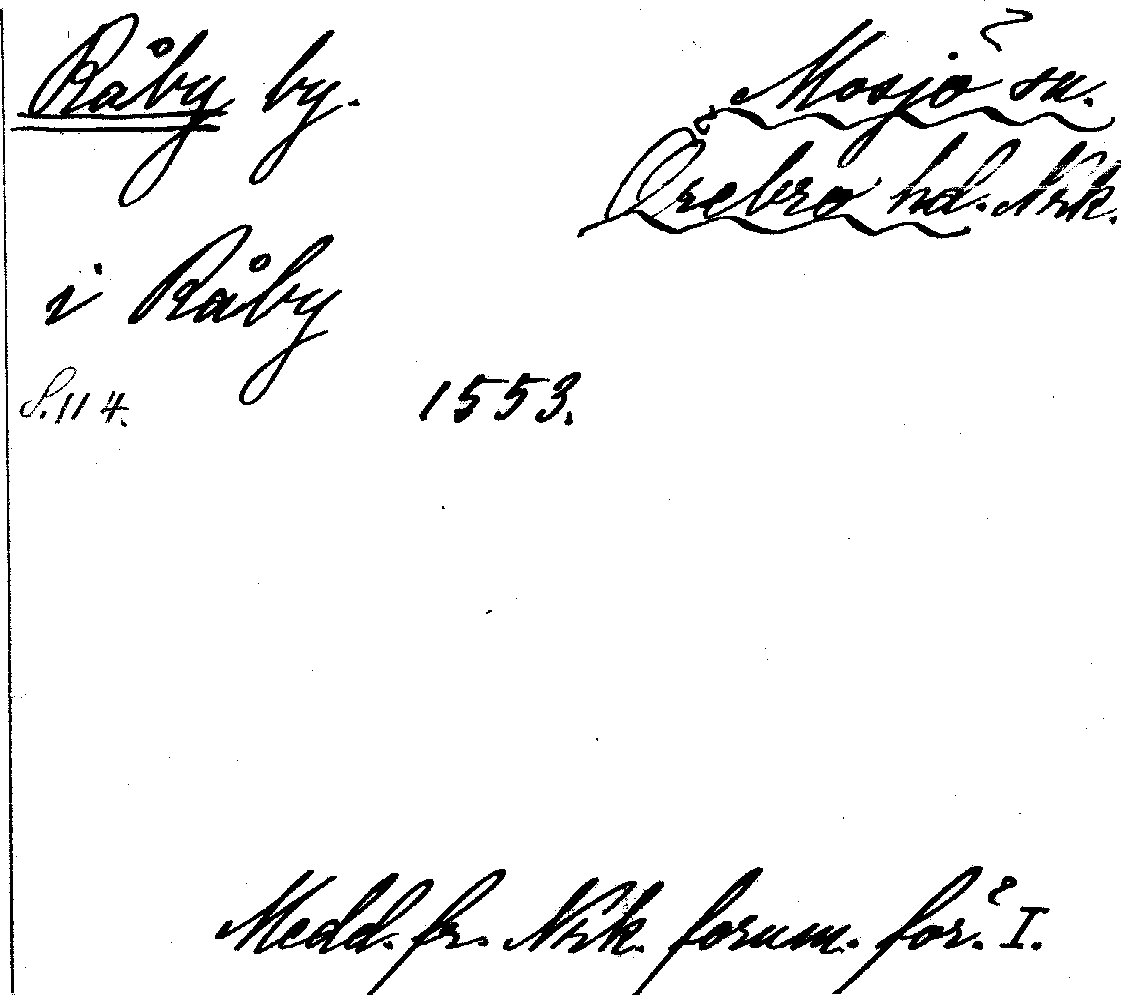 Råby by.
Mosjö sn.
Örebro hd. Nrk.
i Råby
S. 114.
1553.
Medd. fr. Nrk. fornm. för. I.